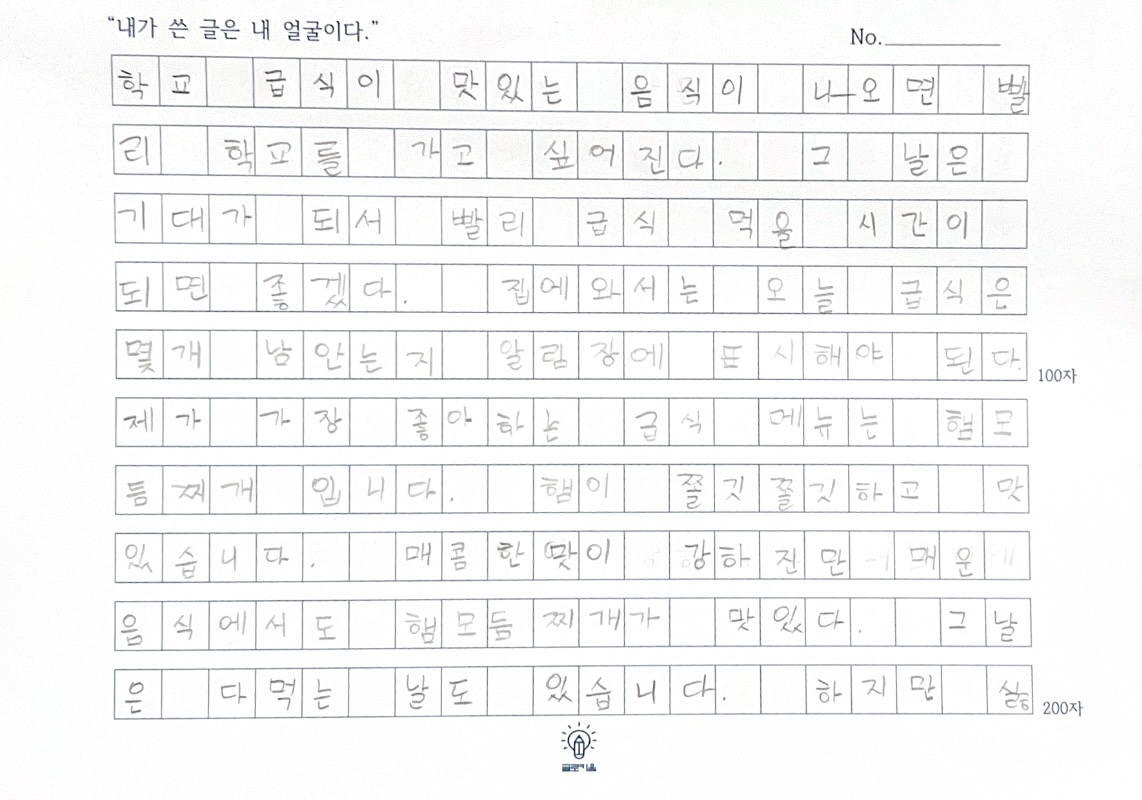 “내가 쓴 글은 내 얼굴이다.”
No.
학교 급식이 맛있는 음식이 나오면 빨
리 학교를 가고 싶어진다. 그 날은
기대가 되서 빨리 급식 먹을 시간이
되면 좋겠다. 집에와서는 오늘 급식은
몇개 남안는지 알림장에 표시해야 된다.
100자
제가 가장 좋아하는 급식 메뉴는 햄모
듬찌개 입니다. 햄이 쫄깃쫄깃하고 맛
있습니다. 매콤한맛이 강하진만 매운
음식에서도 햄모듬찌개가 맛있다. 그날
은 다먹는 날도 있습니다. 하지만
200자
글로키움